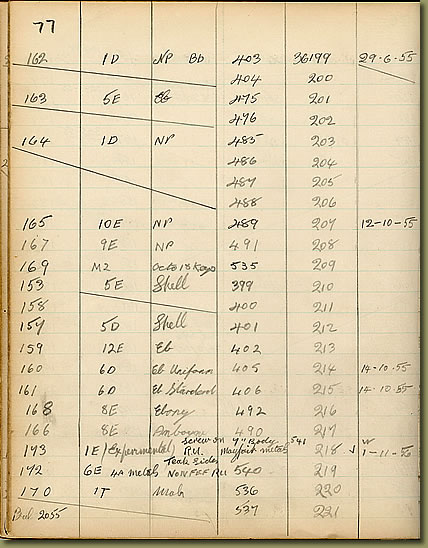 77
162 1D NP Bb 403 36199 29-6-55
404 200
163 5E Eb 475 201
476 202
164 1D NP 485 203
486 204
487 205
488 206
165 10E NP 489 207 12-10-55
167 9E NP 491 208
169 M2 Octo 18 Keys 535 209
153 5E Shell 399 210
158 400 211
154 5D Shell 401 212
159 12E Eb 402 213
160 6D Eb Uniform 405 214 14-10-55
161 6D Eb Standard 406 215 14-10-55
168 8E Ebony 492 216
166 8E Amboyna 490 217
Screw on 4" Body 541
193 1E (Experimental) R.U. Mayfair metal 218 W 1-11-56
Teak Sides
192 6E 4A metal Non FFF RU 540 219
170 1T Mah 536 220
Bal 2055 537 221